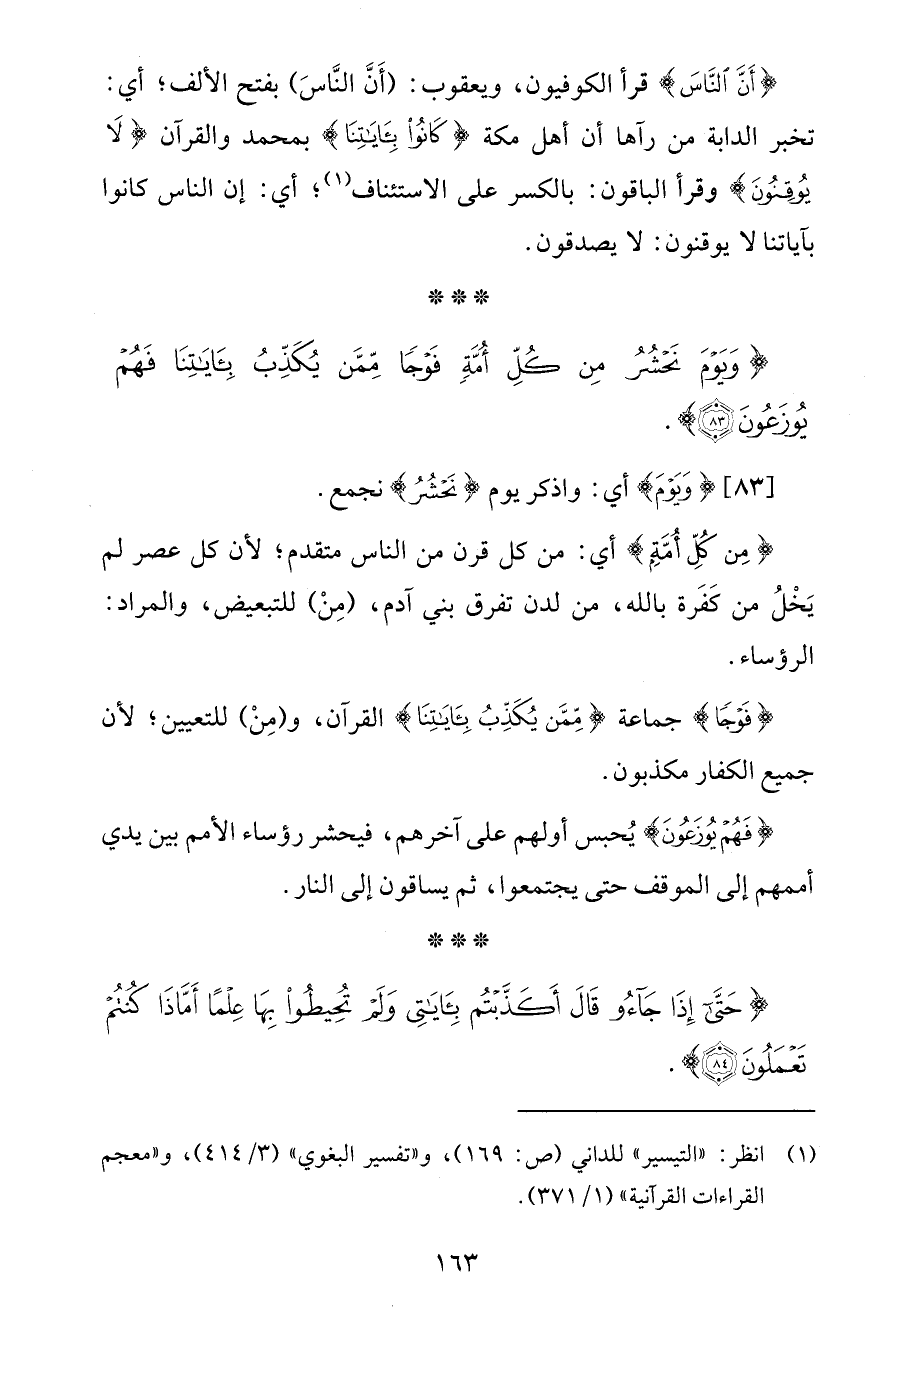 ﴿أَنَّ ٱلنَّاسَ﴾ قرأ الكوفيون، ويعقوب: (أَنَّ النَّاسَ) بفتح الألف؛ أي:
تخبر الدابة من رآها أن أهل مكة ﴿كَانُوا۟ بِـَٔايَـٰتِنَا﴾ بمحمد والقرآن ﴿لَا
يُوقِنُونَ﴾ وقرأ الباقون: بالكسر على الاستئناف(١)؛ أي: إن الناس كانوا
بآياتنا لا يوقنون: لا يصدقون.
* * *
﴿وَيَوْمَ نَحْشُرُ مِن كُلِّ أُمَّةٍ فَوْجًا مِّمَّن يُكَذِّبُ بِـَٔايَـٰتِنَا فَهُمْ
يُوزَعُونَ ٨٣﴾.
[٨٣] ﴿وَيَوْمَ﴾ أي: واذكر يوم ﴿نَحْشُرُ﴾ نجمع.
﴿مِن كُلِّ أُمَّةٍ﴾ أي: من كل قرن من الناس متقدم؛ لأن كل عصر لم
يَخْلُ من كَفَرة بالله، من لدن تفرق بني آدم، (مِنْ) للتبعيض، والمراد:
الرؤساء.
﴿فَوْجًا﴾ جماعة ﴿مِّمَّن يُكَذِّبُ بِـَٔايَـٰتِنَا﴾ القرآن، و(مِنْ) للتعيين؛ لأن
جميع الكفار مكذبون.
﴿فَهُمْ يُوزَعُونَ﴾ يُحبس أولهم على آخرهم، فيحشر رؤساء الأمم بين يدي
أممهم إلى الموقف حتى يجتمعوا، ثم يساقون إلى النار.
* * *
﴿حَتَّىٰٓ إِذَا جَآءُو قَالَ أَكَذَّبْتُم بِـَٔايَـٰتِى وَلَمْ تُحِيطُوا۟ بِهَا عِلْمًا أَمَّاذَا كُنتُمْ
تَعْمَلُونَ ٨٤﴾.
(١) انظر: «التيسير» للداني (ص: ١٦٩)، و«تفسير البغوي» (٣/ ٤١٤)، و«معجم
القراءات القرآنية» (١/ ٣٧١).
١٦٣